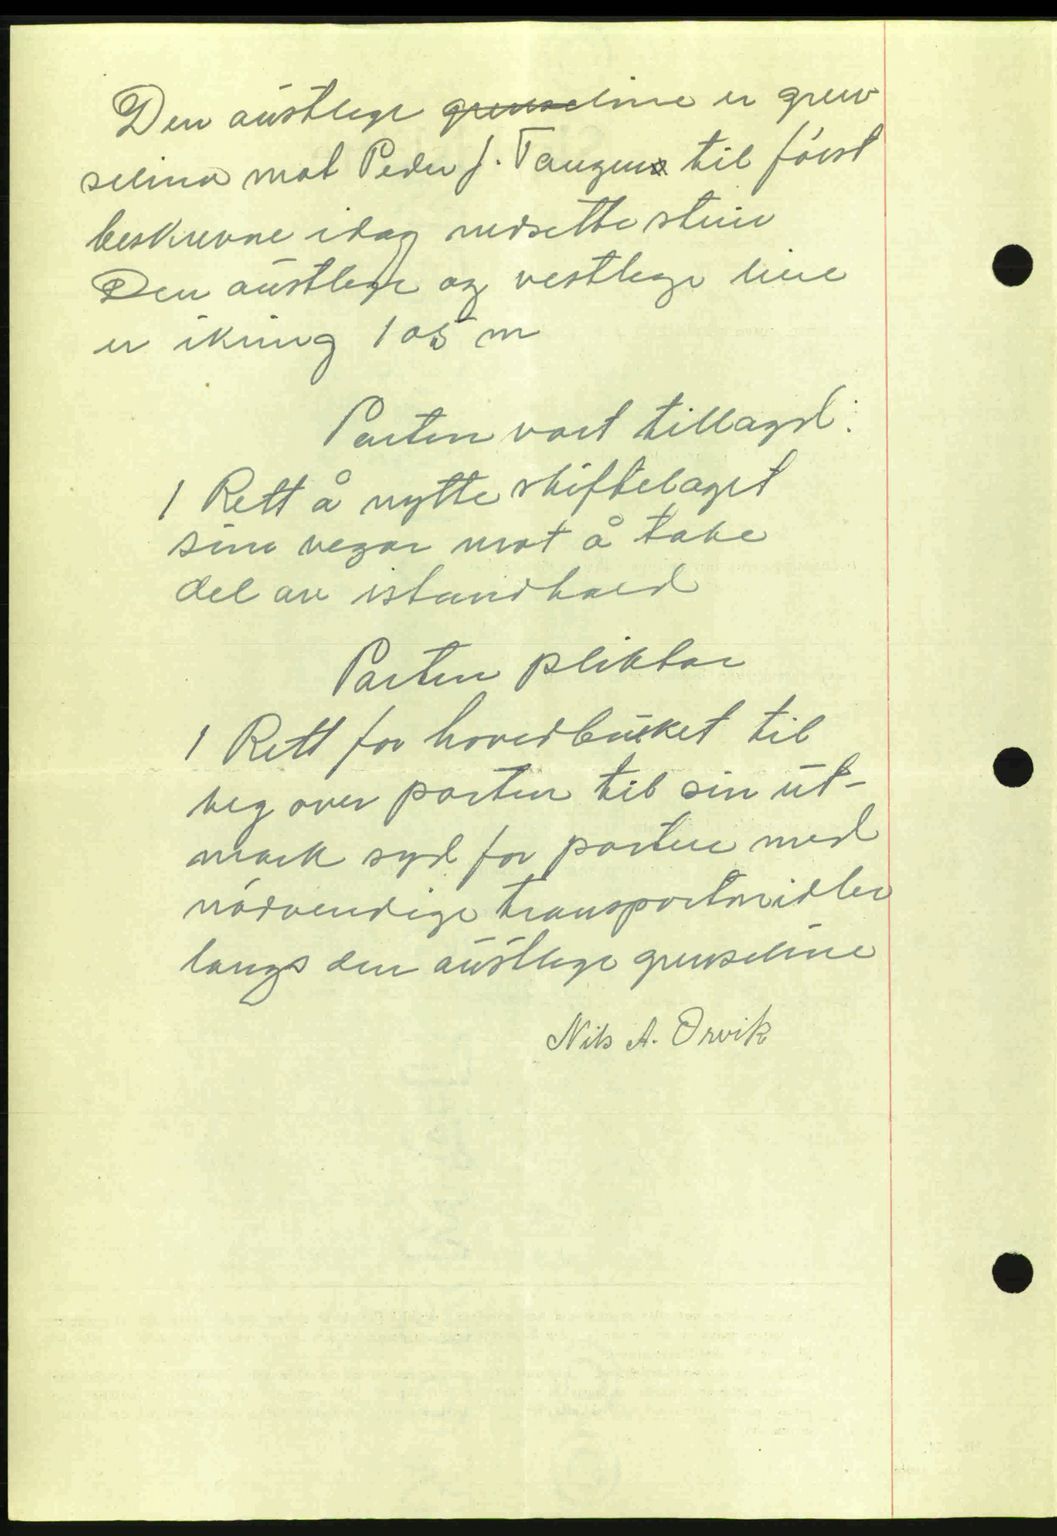 Den austlege ~~grense~~line er gren
selina mot Peder J. Tangen til först
beskrevne idag nedsette stein
Den austlege og vestlege line
er ikring 105 m
Parten vart tillagd:
1 Rett å nytte skiftelaget
sine vegar mot å take
del av istandhald
Parten pliktar
1 Rett for hovedbruket til
veg over parten til sin ut-
mark syd for parten med
nödvendige transportmidler
langs den austlege grenseline
Nils A. Orvik